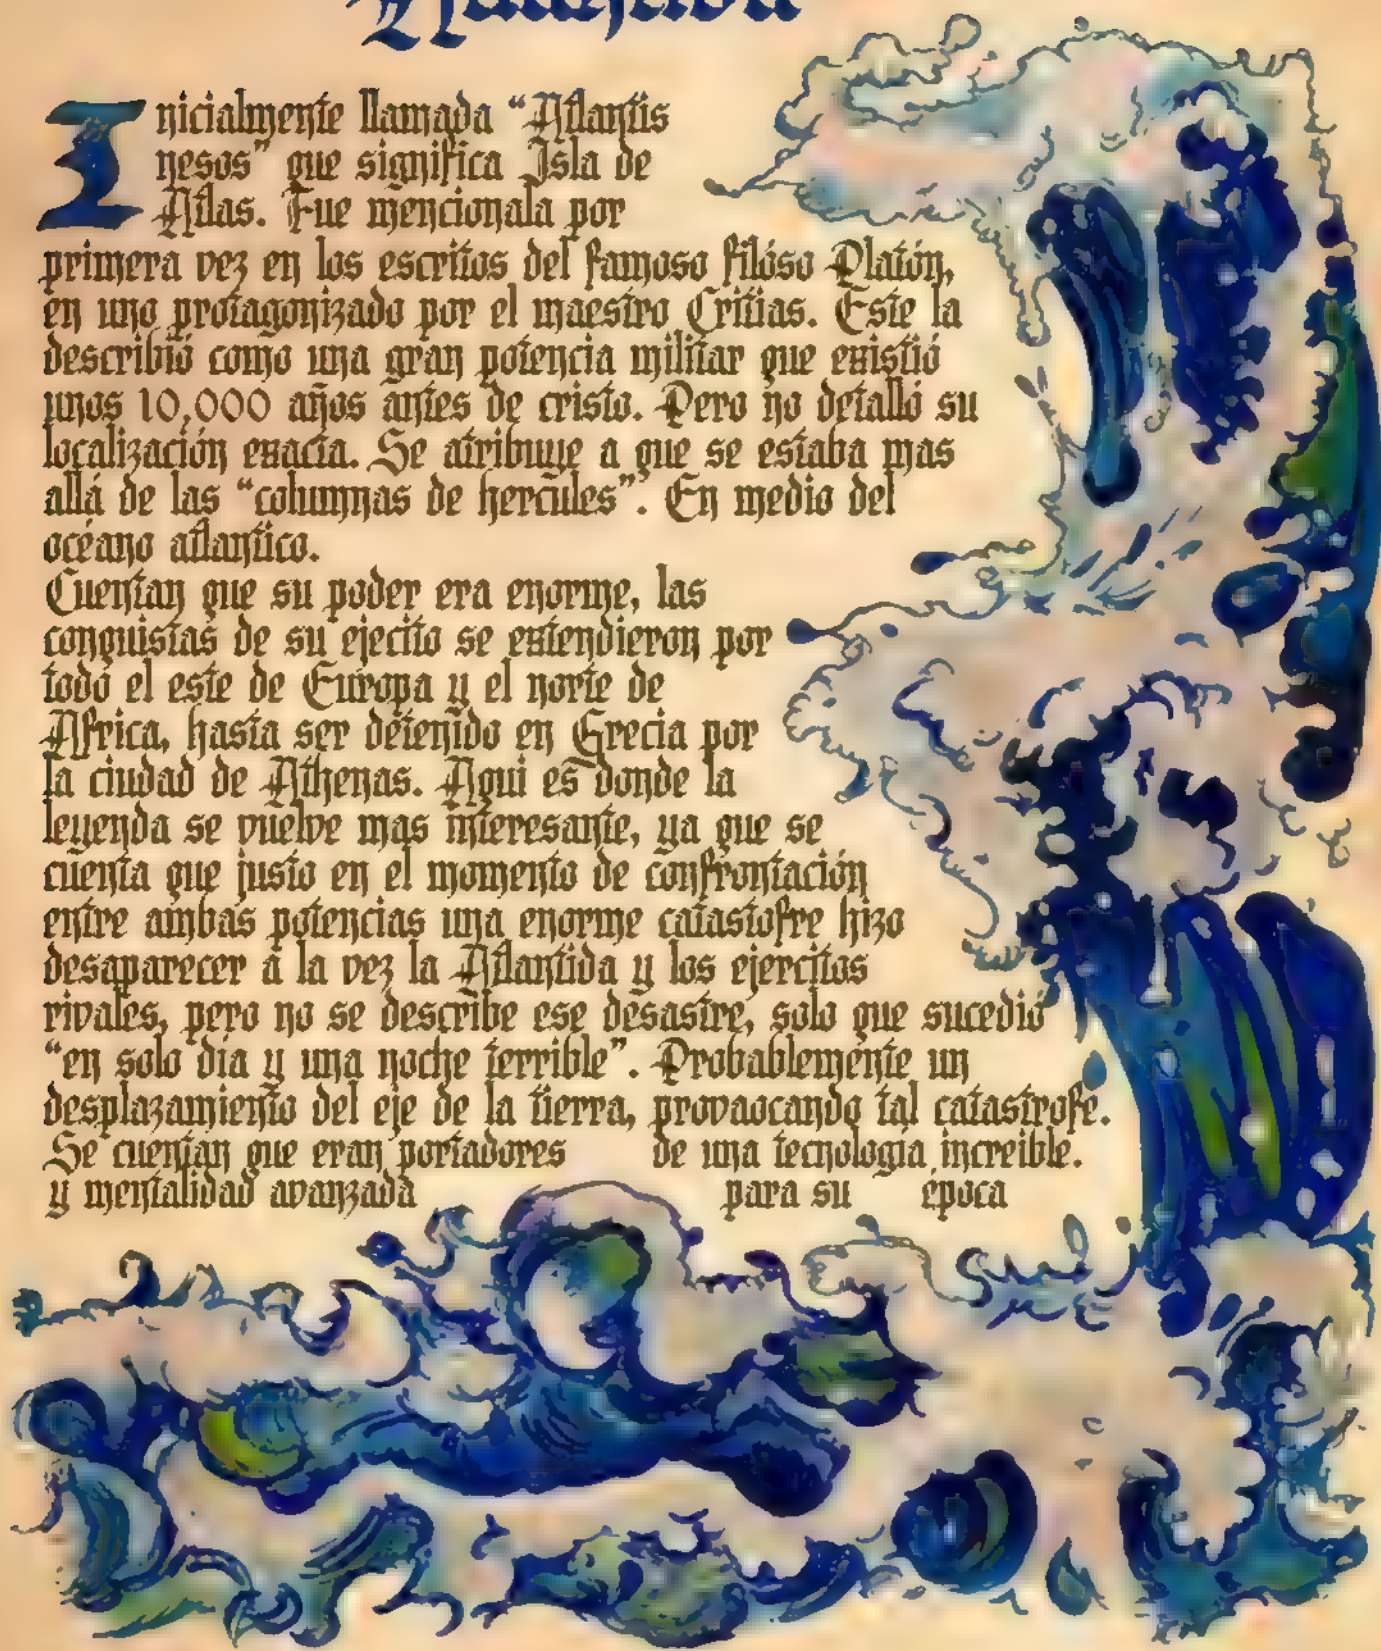 Inicialmente llamada “Atlantis
nesos” que significa Isla de
Atlas. Fue mencionala por
primera vez en los escritos del famoso filóso Platón,
en uno protagonizado por el maestro Critias. Este la
describió como una gran potencia militar que existió
unos 10,000 años antes de cristo. Pero no detalló su
localización exacta. Se atribuye a que se estaba mas
allá de las “columnas de hercules”. En medio del
océano atlantico.
Cuentan que su poder era enorme, las
conquistas de su ejecito se extendieron por
todo el este de Europa y el norte de
Africa, hasta ser detenido en Grecia por
la ciudad de Athenas. Aqui es donde la
leyenda se vuelve mas interesante, ya que se
cuenta que justo en el momento de confrontación
entre ambas potencias una enorme catastofre hizo
desaparecer a la vez la Atlantida y los ejercitos
rivales, pero no se describe ese desastre, solo que sucedió
“en solo dia y una noche terrible”. Probablemente un
desplazamiento del eje de la tierra, provaocando tal catastrofe.
Se cuentan que eran portadores de una tecnologia increible.
y mentalidad avanzada para su epoca